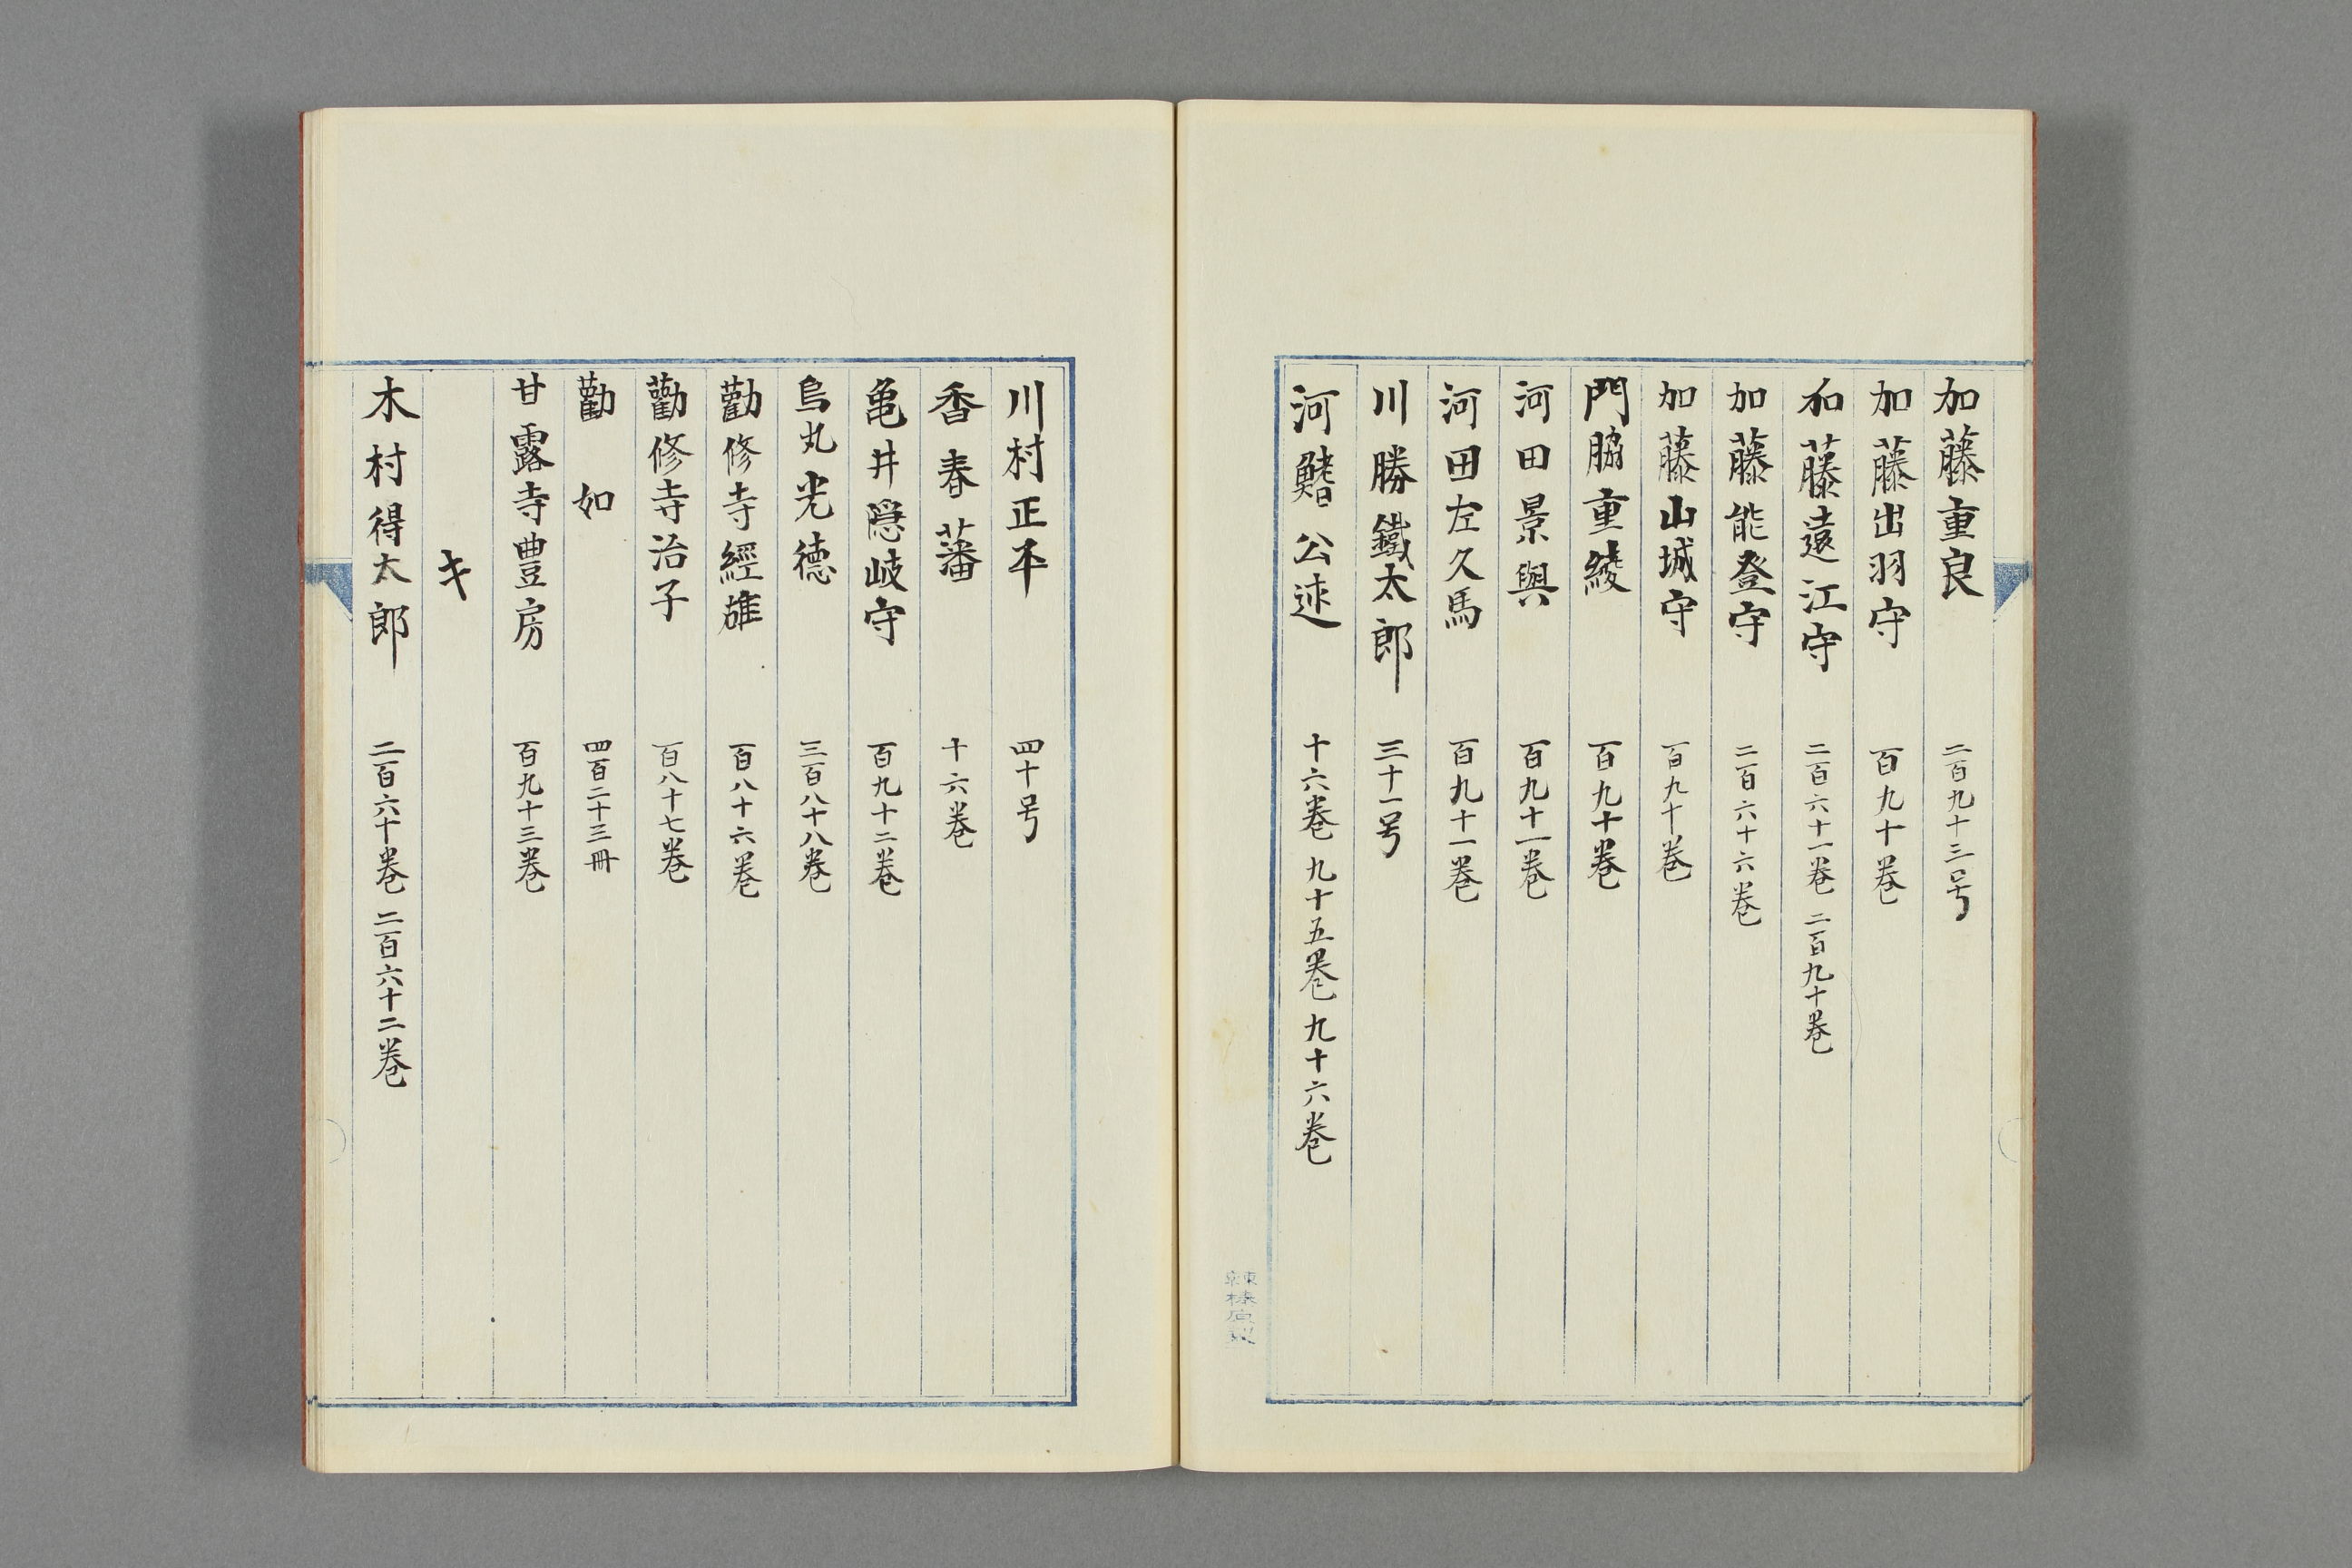 加藤重良 二百九十三号
加藤出羽守 百九十巻
加藤遠江守 二百六十一巻 二百九十巻
加藤能登守 二百六十六巻
加藤山城守 百九十巻
門脇重綾 百九十巻
河田景與 百九十一巻
河田左久馬 百九十一巻
川勝鐵太郎 三十一号
河鰭公述 十六巻 九十五巻 九十六巻
川村正平 四十号
香春藩 十六巻
亀井隠岐守 百九十二巻
烏丸光德 三百八十八巻
勸修寺經雄 百八十六巻
勸修寺治子 百八十七巻
勸 如 四百二十三冊
甘露寺豊房 百九十三巻
キ
木村得太郎 二百六十巻 二百六十二巻